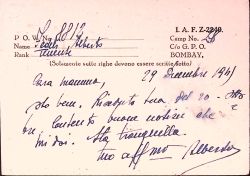 P.O.W. No. 8812 I.A.F.Z-2249.
Name Alberto Camp No. 26
Rank Tenente C/o G.P.O.
BOMBAY.
(Solamente sulle righe devono essere scritte sotto)
Cara mamma, 29 Dicembre 1941
sto bene. Ricevuto tua del 20
Contento buone notizie che
mi dai. Sta tranquilla.
tuo aff.mo Alberto